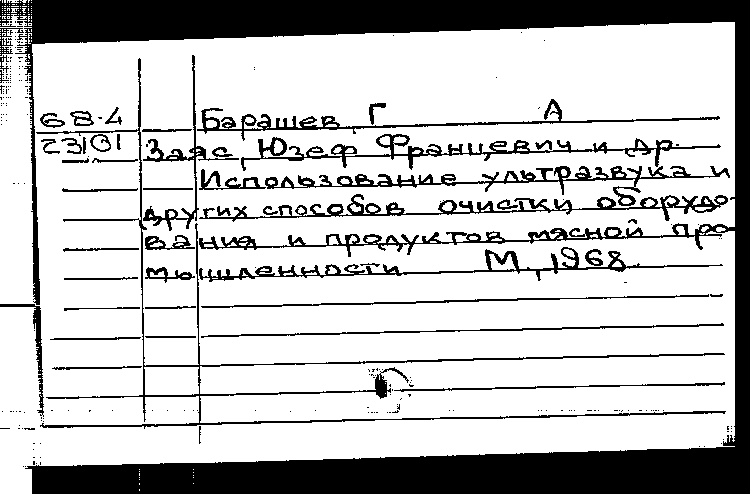 68-4 Барашев, Г А
23101 Заяс, Юзеф Францевич и др.
Использование ультразвука и
других способов очистки оборудо-
вания и продуктов мясной про-
мышленности М., 1968.